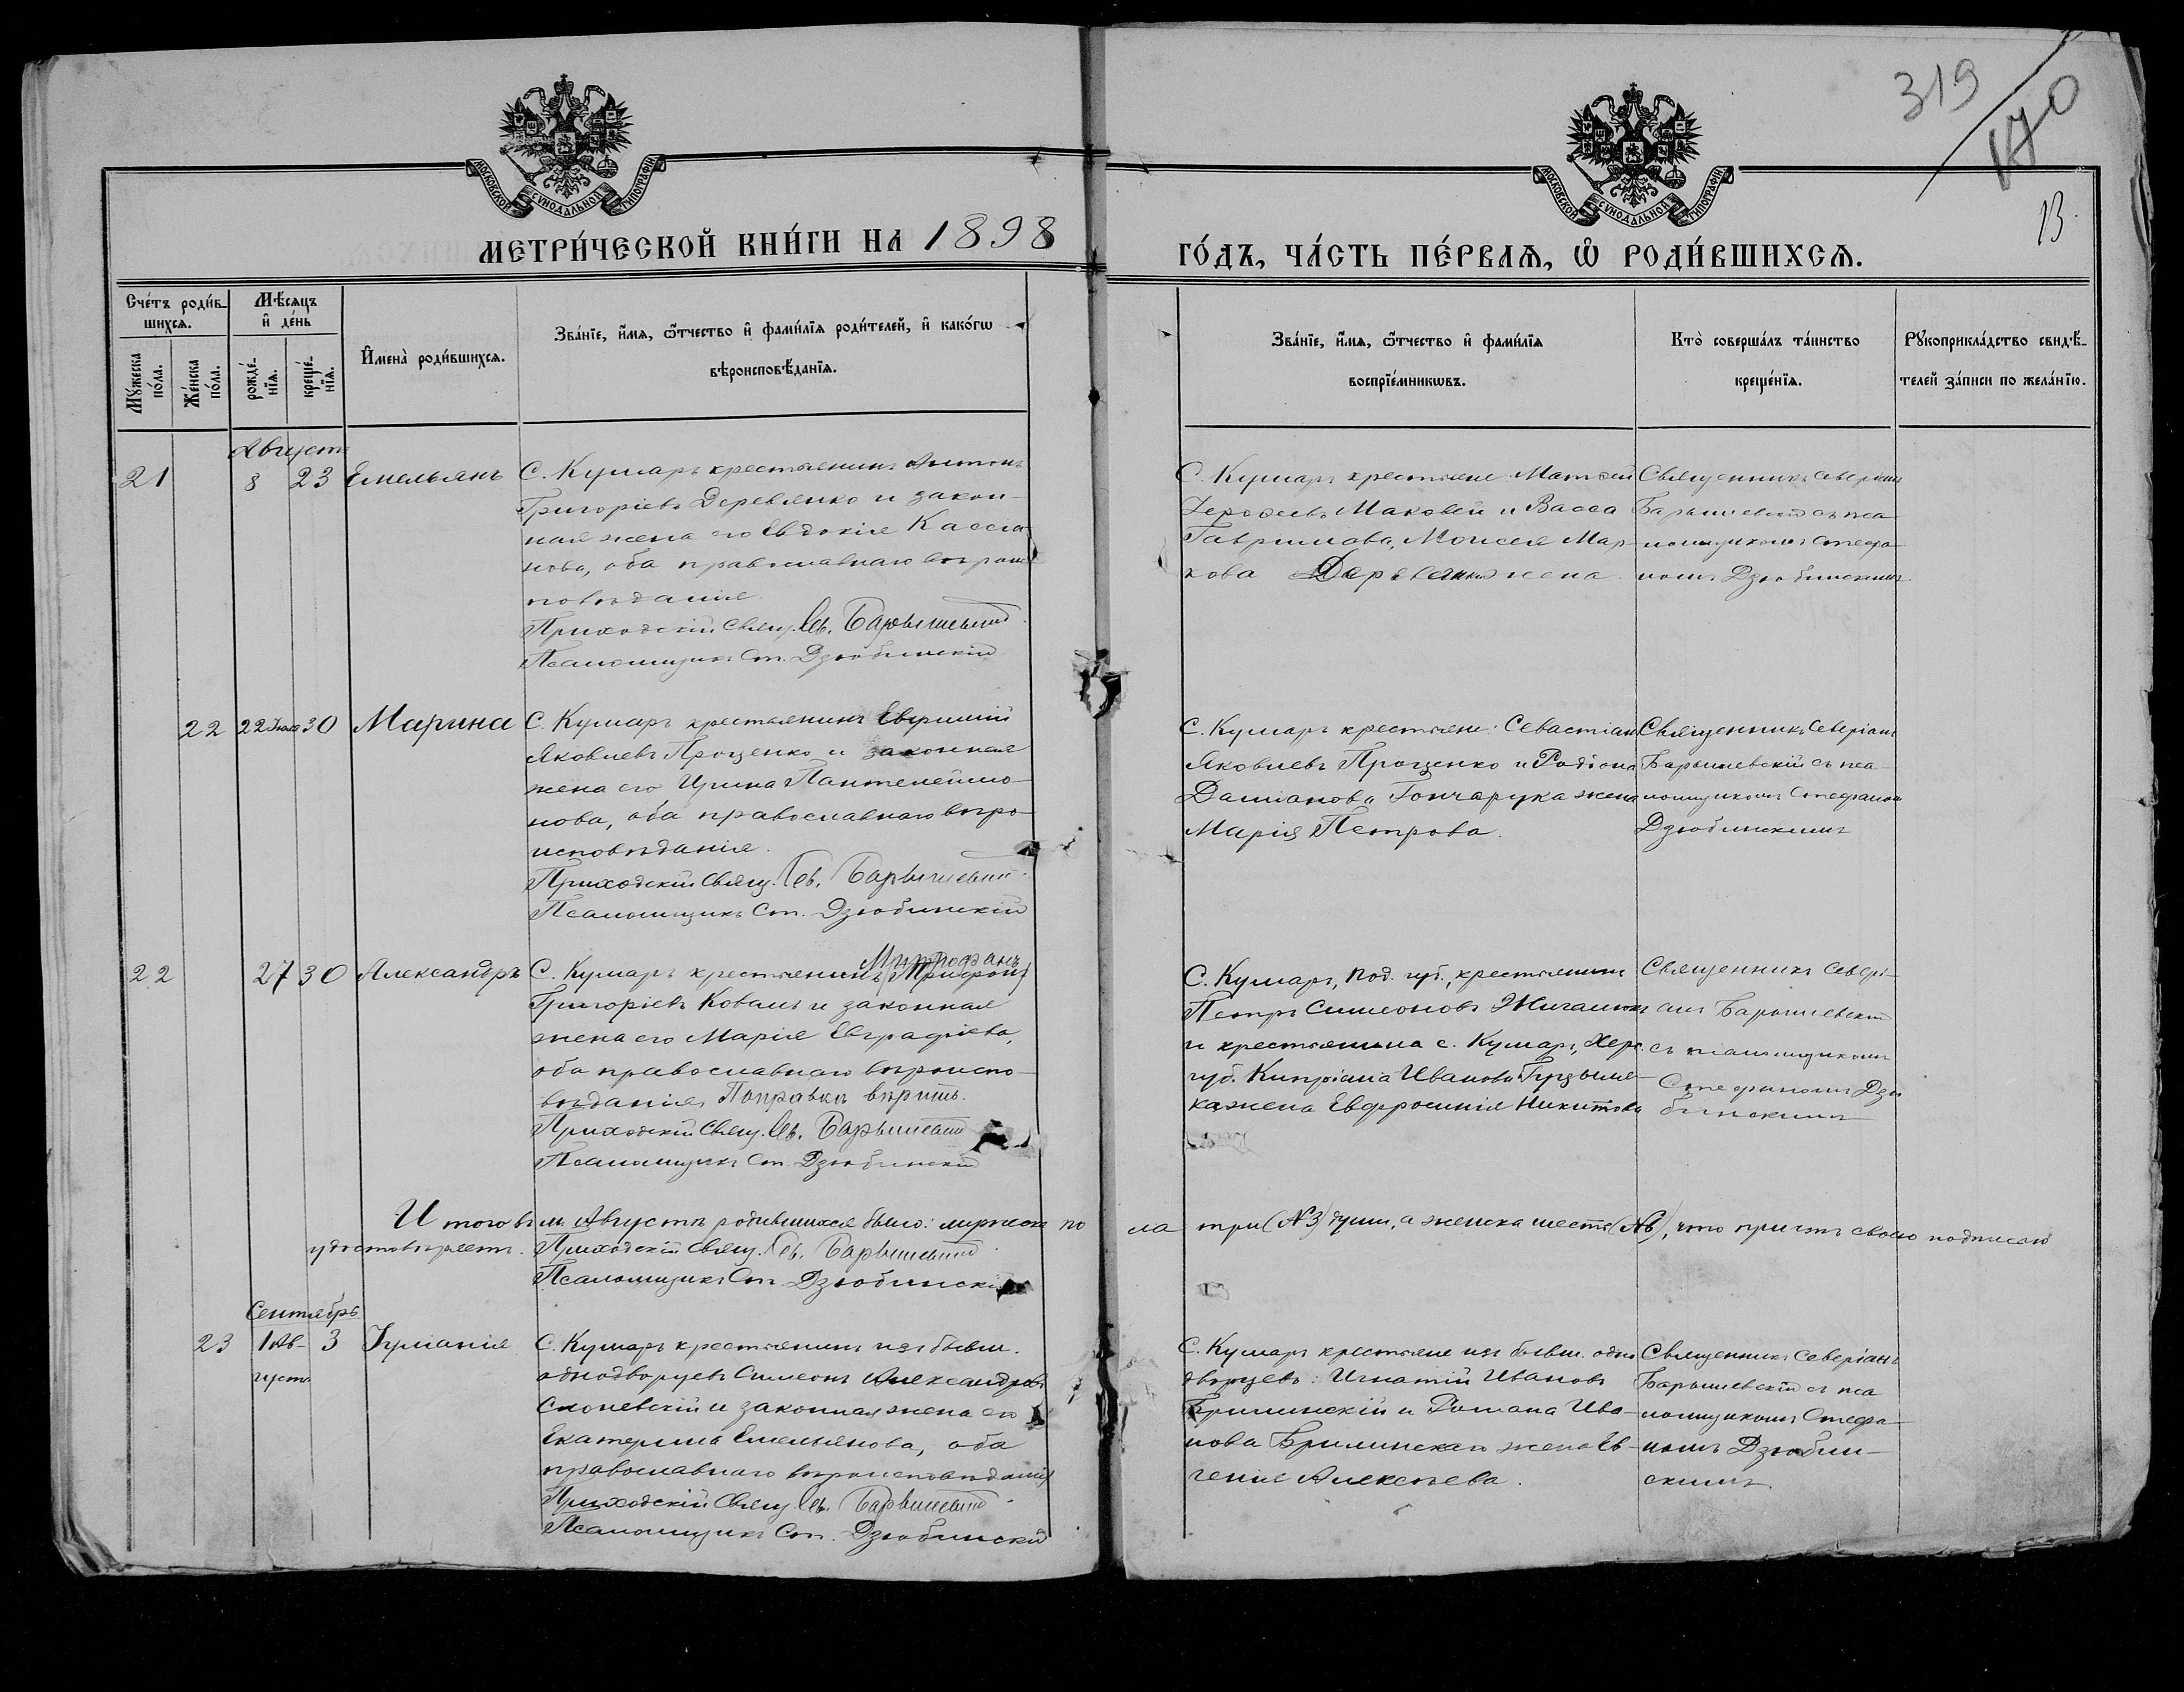 319
170
13
МОСКОВСКОЙ СѴНОДАЛЬНОЙ ТИПОГРАФІИ
МОСКОВСКОЙ СѴНОДАЛЬНОЙ ТИПОГРАФІИ
МЕТРИ́ЧЕСКОЙ КНИ́ГИ НА 1898
ГО́ДЪ, ЧА́СТЬ ПЕ́РВАѦ, Ѽ РОДИ́ВШИХСѦ.
Сче́тъ роди́в-
шихсѧ.
Мѣ́сѧцъ
и҆ де́нь
Мꙋ́жеска по́ла.
Же́нска по́ла.
рожде́-нїѧ.
креще́-нїѧ.
И҆мена̀ роди́вшихсѧ.
Зва́нїе, и҆́мѧ, ѻ҆́тчество и҆ фами́лїѧ роди́телей, и҆ како́гѡ
вѣроисповѣ́данїѧ.
Зва́нїе, и҆́мѧ, ѻ҆́тчество и҆ фами́лїѧ
воспрїе́мникѡвъ.
Кто̀ соверша́лъ та́инство
креще́нїѧ.
Рꙋкоприкла́дство свидѣ́-
телей за́писи по жела́нїю.
Августъ
21 8 23 Емельянъ
С. Кумаръ крестьянинъ Антонъ
Григоріевъ Деревянко и закон-
ная жена его Евдокія Кассіа-
нова, оба православнаго вѣроис
повѣданія.
Приходскій Свящ. Св. Барышевскій
Псаломщикъ Ст. Дзюбинскій
С. Кумаръ крестьяне: Матѳей
Іероѳеевъ Маковей и Васса
Гаврилова, Моисея Мар-
кова Деревянки жена.
Священникъ Северіанъ
Барышевскій съ пса-
ломщикомъ Стефа-
номъ Дзюбинскимъ.
22 22 Іюля 30 Марина
С. Кумаръ крестьянинъ Евфимій
Яковлевъ Проценко и законная
жена его Ирина Пантелеймо-
нова, оба православнаго вѣро-
исповѣданія.
Приходскій Свящ. Св. Барышевскій
Псаломщикъ Ст. Дзюбинскій
С. Кумаръ крестьяне: Севастіан
Яковлевъ Проценко и Родіона
Даміанова Гончарука жена
Марія Петрова.
Священникъ Северіанъ
Барышевскій съ пса-
ломщикомъ Стефаномъ
Дзюбинскимъ
22 27 30 Александръ
Митрофанъ
С. Кумаръ крестьянинъ (Трифонъ)
Григоріевъ Коваль и законная
жена его Марія Евграфіева,
оба православнаго вѣроиспо-
вѣданія. Поправкѣ вѣрить.
Приходскій Свящ. Св. Барышевскій
Псаломщикъ Ст. Дзюбинскій
С. Кумаръ, Под. губ., крестьянинъ
Петръ Симеоновъ
и крестьянина с. Кумаръ, Херс.
губ. Кипріана Иванова
жена Евфросинія Никитова
Священникъ Севері-
анъ Барышевскій
съ псаломщикомъ
Стефаномъ Дзю
бинскимъ
Итого въ м. Августѣ родившихся было: мужеска по
ла три (№3) души, а женска шесть (№6), что причтъ своею подписью
удостовѣряетъ. Приходскій Свящ. Св. Барышевскій
Псаломщикъ Ст. Дзюбинскій
Сентябрь
23 1 Ав- 3 Іуліанія
густа
С. Кумаръ крестьянинъ изъ бывш.
однодворцевъ Симеонъ Александровъ
Сконевскій и законная жена его
Екатерина Емельянова, оба
православнаго вѣроисповѣданія
Приходскій Свящ. Св. Барышевскій
Псаломщикъ Ст. Дзюбинскій
С. Кумаръ крестьяне изъ бывш. одно
дворцевъ: Игнатій Ивановъ
Брилинскій и Романа Ива-
нова Брилинскаго жена Ев-
генія Алексѣева.
Священникъ Северіанъ
Барышевскій съ пса
ломщикомъ Стефа-
номъ Дзюбин-
скимъ